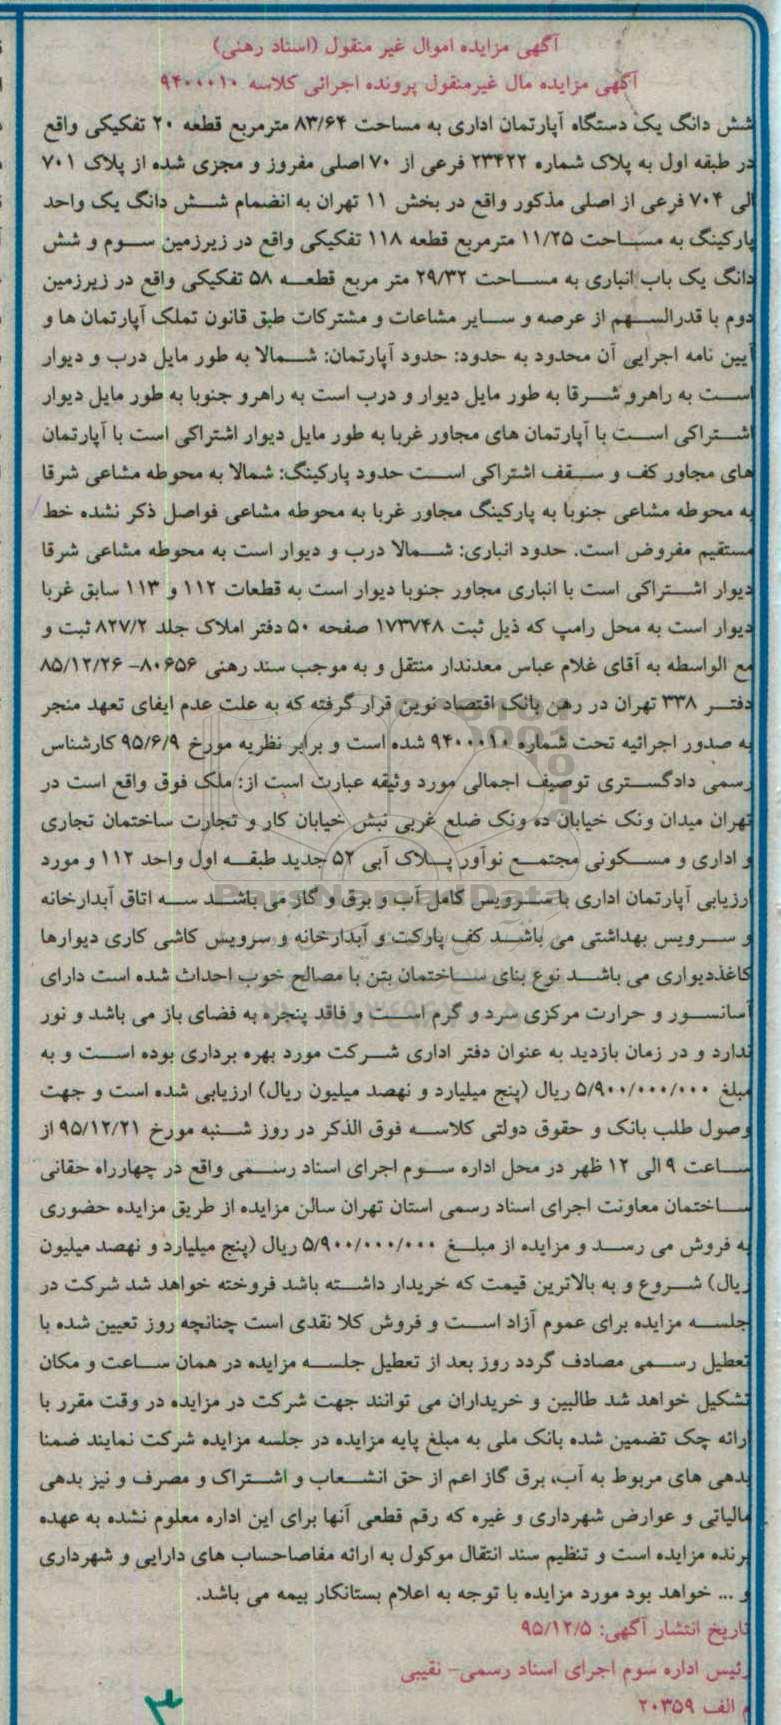 آگهی مزایده اموال غیر منقول (اسناد رهنی)
آگهی مزایده مال غیرمنقول پرونده اجرائی کلاسه ۹۴۰۰۰۱۰
شش دانگ یک دستگاه آپارتمان اداری به مساحت ۸۳/۶۴ مترمربع قطعه ۲۰ تفکیکی واقع
در طبقه اول به پلاک شماره ۲۳۴۲۲ فرعی از ۷۰ اصلی مفروز و مجزی شده از پلاک ۷۰۱
الی ۷۰۴ فرعی از اصلی مذکور واقع در بخش ۱۱ تهران به انضمام شش دانگ یک واحد
پارکینگ به مساحت ۱۱/۲۵ مترمربع قطعه ۱۱۸ تفکیکی واقع در زیرزمین سوم و شش
دانگ یک باب انباری به مساحت ۲۹/۳۲ متر مربع قطعه ۵۸ تفکیکی واقع در زیرزمین
دوم با قدرالسهم از عرصه و سایر مشاعات و مشترکات طبق قانون تملک آپارتمان ها و
آیین نامه اجرایی آن محدود به حدود: حدود آپارتمان: شمالا به طور مایل درب و دیوار
است به راهرو شرقا به طور مایل دیوار و درب است به راهرو جنوبا به طور مایل دیوار
اشتراکی است با آپارتمان های مجاور غربا به طور مایل دیوار اشتراکی است با آپارتمان
های مجاور کف و سقف اشتراکی است حدود پارکینگ: شمالا به محوطه مشاعی شرقا
به محوطه مشاعی جنوبا به پارکینگ مجاور غربا به محوطه مشاعی فواصل ذکر نشده خط
مستقیم مفروض است. حدود انباری: شمالا درب و دیوار است به محوطه مشاعی شرقا
دیوار اشتراکی است با انباری مجاور جنوبا دیوار است به قطعات ۱۱۲ و ۱۱۳ سابق غربا
دیوار است به محل رامپ که ذیل ثبت ۱۷۳۷۴۸ صفحه ۵۰ دفتر املاک جلد ۸۲۷/۲ ثبت و
مع الواسطه به آقای غلام عباس معدندار منتقل و به موجب سند رهنی ۸۰۶۵۶- ۸۵/۱۲/۲۶
دفتر ۳۳۸ تهران در رهن بانک اقتصاد نوین قرار گرفته که به علت عدم ایفای تعهد منجر
به صدور اجرائیه تحت شماره ۹۴۰۰۰۱۰ شده است و برابر نظریه مورخ ۹۵/۶/۹ کارشناس
رسمی دادگستری توصیف اجمالی مورد وثیقه عبارت است از: ملک فوق واقع است در
تهران میدان ونک خیابان ده ونک ضلع غربی نبش خیابان کار و تجارت ساختمان تجاری
و اداری و مسکونی مجتمع نوآور پلاک آبی ۵۲ جدید طبقه اول واحد ۱۱۲ و مورد
ارزیابی آپارتمان اداری با سرویس کامل آب و برق و گاز می باشد سه اتاق آبدارخانه
و سرویس بهداشتی می باشد کف پارکت و آبدارخانه و سرویس کاشی کاری دیوارها
کاغذدیواری می باشد نوع بنای ساختمان بتن با مصالح خوب احداث شده است دارای
آسانسور و حرارت مرکزی سرد و گرم است و فاقد پنجره به فضای باز می باشد و نور
ندارد و در زمان بازدید به عنوان دفتر اداری شرکت مورد بهره برداری بوده است و به
مبلغ ۵/۹۰۰/۰۰۰/۰۰۰ ریال (پنج میلیارد و نهصد میلیون ریال) ارزیابی شده است و جهت
وصول طلب بانک و حقوق دولتی کلاسه فوق الذکر در روز شنبه مورخ ۹۵/۱۲/۲۱ از
ساعت ۹ الی ۱۲ ظهر در محل اداره سوم اجرای اسناد رسمی واقع در چهارراه حقانی
ساختمان معاونت اجرای اسناد رسمی استان تهران سالن مزایده از طریق مزایده حضوری
به فروش می رسد و مزایده از مبلغ ۵/۹۰۰/۰۰۰/۰۰۰ ریال (پنج میلیارد و نهصد میلیون
ریال) شروع و به بالاترین قیمت که خریدار داشته باشد فروخته خواهد شد شرکت در
جلسه مزایده برای عموم آزاد است و فروش کلا نقدی است چنانچه روز تعیین شده با
تعطیل رسمی مصادف گردد روز بعد از تعطیل جلسه مزایده در همان ساعت و مکان
تشکیل خواهد شد طالبین و خریداران می توانند جهت شرکت در مزایده در وقت مقرر با
ارائه چک تضمین شده بانک ملی به مبلغ پایه مزایده در جلسه مزایده شرکت نمایند ضمنا
بدهی های مربوط به آب، برق گاز اعم از حق انشعاب و اشتراک و مصرف و نیز بدهی
مالیاتی و عوارض شهرداری و غیره که رقم قطعی آنها برای این اداره معلوم نشده به عهده
برنده مزایده است و تنظیم سند انتقال موکول به ارائه مفاصاحساب های دارایی و شهرداری
و ... خواهد بود مورد مزایده با توجه به اعلام بستانکار بیمه می باشد.
تاریخ انتشار آگهی: ۹۵/۱۲/۵
رئیس اداره سوم اجرای اسناد رسمی- نقیبی
م الف ۲۰۳۵۹
۳
ParsNamadData